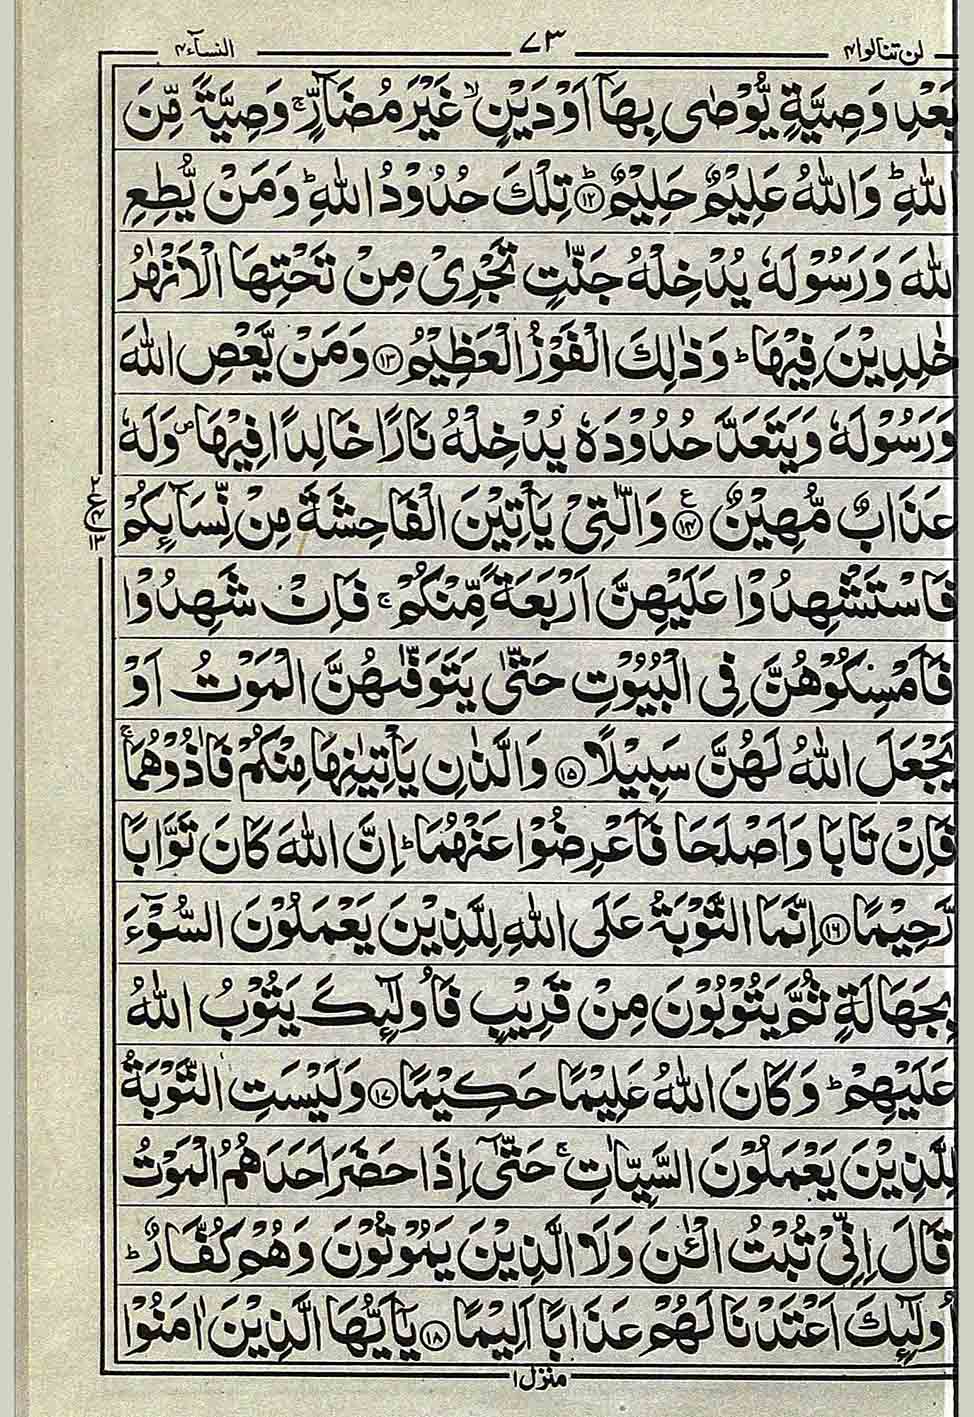 لن تنالوا ٤ ٧٣ النسآء ٤
بَعْدِ وَصِيَّةٍ يُّوْصٰى بِهَآ اَوْ دَيْنٍ ۙ غَيْرَ مُضَآرٍّ ۚ وَصِيَّةً مِّنَ
اللّٰهِ ؕ وَاللّٰهُ عَلِيْمٌ حَلِيْمٌ ؕ ﴿۱۲﴾ تِلْكَ حُدُوْدُ اللّٰهِ ؕ وَمَنْ يُّطِعِ
اللّٰهَ وَرَسُوْلَهٗ يُدْخِلْهُ جَنّٰتٍ تَجْرِىْ مِنْ تَحْتِهَا الْاَنْهٰرُ
خٰلِدِيْنَ فِيْهَا ؕ وَذٰلِكَ الْفَوْزُ الْعَظِيْمُ ﴿۱۳﴾ وَمَنْ يَّعْصِ اللّٰهَ
وَرَسُوْلَهٗ وَيَتَعَدَّ حُدُوْدَهٗ يُدْخِلْهُ نَارًا خَالِدًا فِيْهَا ۪ وَلَهٗ
عَذَابٌ مُّهِيْنٌ ﴿۱۴﴾ ع وَالّٰتِىْ يَاْتِيْنَ الْفَاحِشَةَ مِنْ نِّسَآئِكُمْ
فَاسْتَشْهِدُوْا عَلَيْهِنَّ اَرْبَعَةً مِّنْكُمْ ۚ فَاِنْ شَهِدُوْا
فَاَمْسِكُوْهُنَّ فِى الْبُيُوْتِ حَتّٰى يَتَوَفّٰىهُنَّ الْمَوْتُ اَوْ
يَجْعَلَ اللّٰهُ لَهُنَّ سَبِيْلًا ﴿۱۵﴾ وَالَّذٰنِ يَاْتِيٰنِهَا مِنْكُمْ فَاٰذُوْهُمَا ۚ
فَاِنْ تَابَا وَاَصْلَحَا فَاَعْرِضُوْا عَنْهُمَا ؕ اِنَّ اللّٰهَ كَانَ تَوَّابًا
رَّحِيْمًا ﴿۱۶﴾ اِنَّمَا التَّوْبَةُ عَلَى اللّٰهِ لِلَّذِيْنَ يَعْمَلُوْنَ السُّوْٓءَ
بِجَهَالَةٍ ثُمَّ يَتُوْبُوْنَ مِنْ قَرِيْبٍ فَاُولٰٓئِكَ يَتُوْبُ اللّٰهُ
عَلَيْهِمْ ؕ وَكَانَ اللّٰهُ عَلِيْمًا حَكِيْمًا ﴿۱۷﴾ وَلَيْسَتِ التَّوْبَةُ
لِلَّذِيْنَ يَعْمَلُوْنَ السَّيِّاٰتِ ۚ حَتّٰٓى اِذَا حَضَرَ اَحَدَهُمُ الْمَوْتُ
قَالَ اِنِّىْ تُبْتُ الْئٰنَ وَلَا الَّذِيْنَ يَمُوْتُوْنَ وَهُمْ كُفَّارٌ ؕ
اُولٰٓئِكَ اَعْتَدْنَا لَهُمْ عَذَابًا اَلِيْمًا ﴿۱۸﴾ يٰٓاَيُّهَا الَّذِيْنَ اٰمَنُوْا
منزل ۱